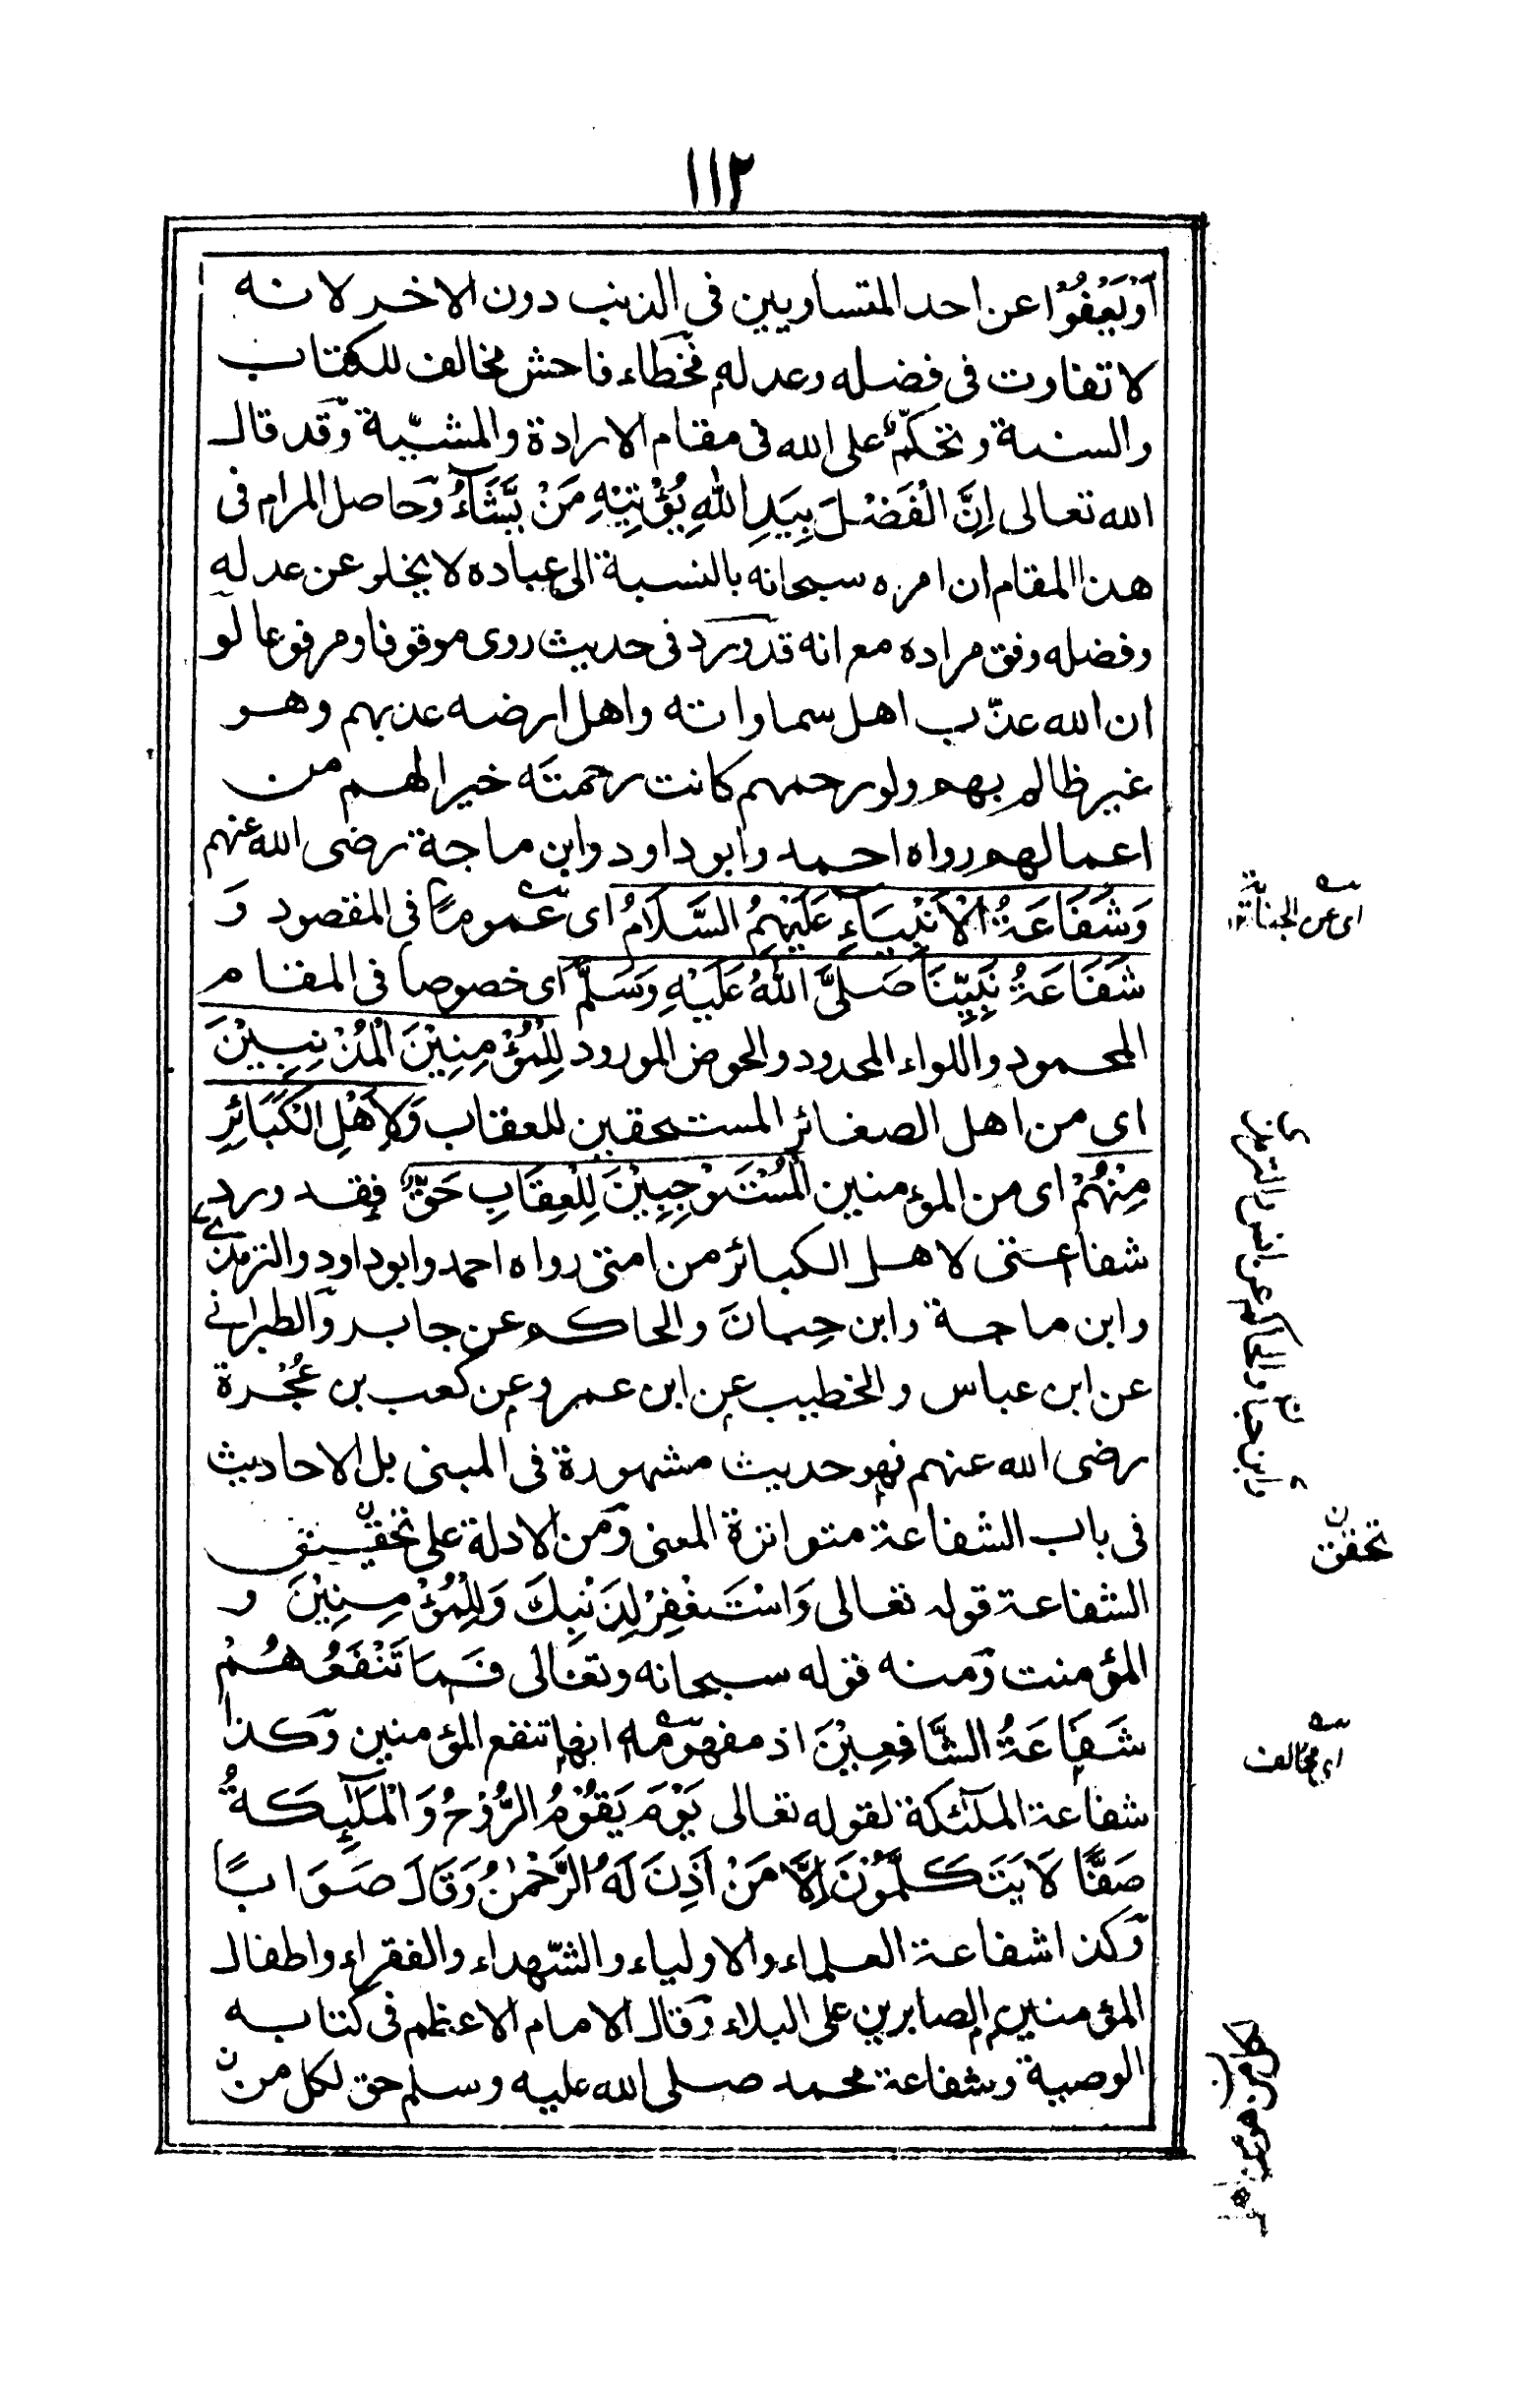 ١١٢
اَوْيَعْفُوْا عن احد المتساويين فى الذنب دون الاخر لانه
لا تفاوت فى فضله وعدله فخطاء فاحش مخالف للكتاب
والسنة وتحكّم على الله فى مقام الارادة والمشيّة وقد قال
الله تعالى اِنَّ الْفَضْلَ بِيَدِ اللهِ يُؤْتِيْهِ مَنْ يَّشَآءُ وحاصل المرام فى
هذا المقام ان امره سبحانه بالنسبة الى عباده لا يخلو عن عدله
وفضله وفق مراده مع انه قد ورد فى حديث روى موقوفا ومرفوعا لو
ان الله عذّب اهل سماواته واهل ارضه عذبهم وهو
غير ظالم بهم ولو رحمهم كانت رحمته خيرا لهم من
اعمالهم رواه احمد وابو داود وابن ماجة رضى الله عنهم
وَشَفَاعَةُ الْاَنْبِيَآءِ عَلَيْهِمُ السَّلَامُ اى عموما فى المقصود وَ
شَفَاعَةُ نَبِيِّنَا صَلَّى اللهُ عَلَيْهِ وَسَلَّمَ اى خصوصا فى المقام
المحمود واللواء المحدود والحوض المورود لِلْمُؤْمِنِيْنَ الْمُذْنِبِيْنَ
اى من اهل الصغائر المستحقين للعقاب وَلِاَهْلِ الْكَبَائِرِ
مِنْهُمْ اى من المؤمنين الْمُسْتَوْجِبِيْنَ لِلْعِقَابِ حَقٌّ فقد ورد
شفاعتى لاهل الكبائر من امتى رواه احمد وابو داود والترمذى
وابن ماجة وابن حبان والحاكم عن جابر والطبرانى
عن ابن عباس والخطيب عن ابن عمر وعن كعب بن عُجْرة
رضى الله عنهم فهو حديث مشهورة فى المبنى بل الاحاديث
فى باب الشفاعة متواترة المعنى ومن الادلة على تحقيق
الشفاعة قوله تعالى وَاسْتَغْفِرْ لِذَنْبِكَ وَلِلْمُؤْمِنِيْنَ و
المؤمنت ومنه قوله سبحانه وتعالى فَمَا تَنْفَعُهُمْ
شَفَاعَةُ الشَّافِعِيْنَ اذ مفهومه انها تنفع المؤمنين وكذا
شفاعة الملٓئكة لقوله تعالى يَوْمَ يَقُوْمُ الرُّوْحُ وَالْمَلٰٓئِكَةُ
صَفًّا لَا يَتَكَلَّمُوْنَ اِلَّا مَنْ اَذِنَ لَهُ الرَّحْمٰنُ وَقَالَ صَوَابًا
وكذا شفاعة العلماء والاولياء والشّهداء والفقراء واطفال
المؤمنين الصابرين على البلاء وقال الامام الاعظم فى كتابه
الوصية وشفاعة محمد صلى الله عليه وسلم حق لكل من
والترمذى
وابن حبان والحاكم عن انس
تحقق
اى مخالف